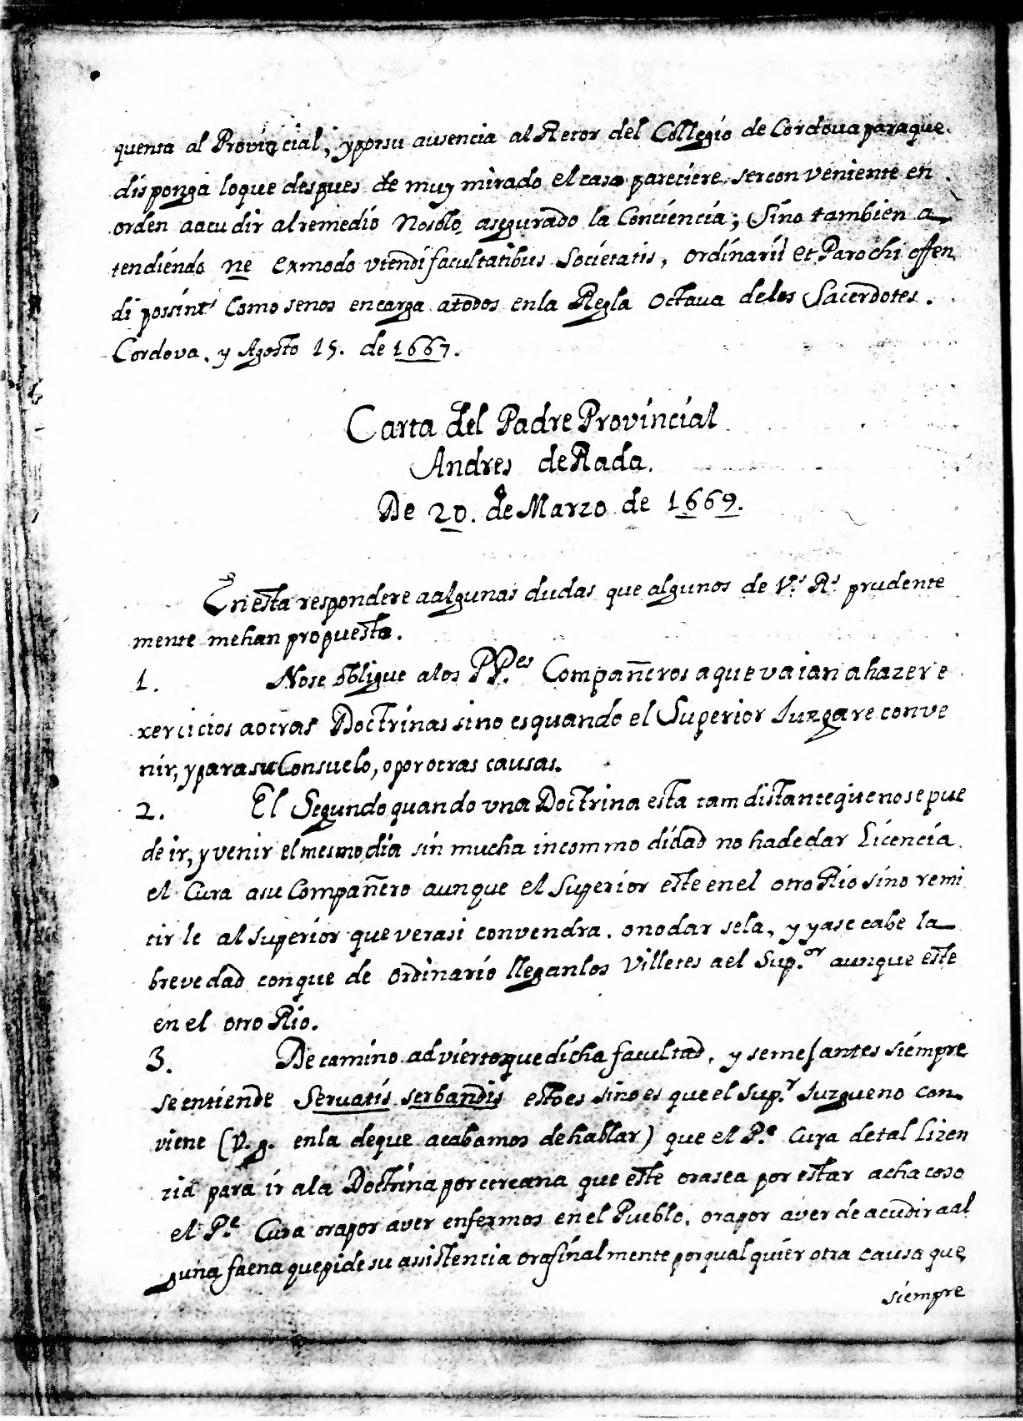 quenta al Provincial, y por su ausencia al Retor del Collegio de Cordova para que
disponga lo que despues de muy mirado el caso pareciere ser conveniente en
orden a acudir al remedio no solo asegurado la Conciencia; Sino tambien a
tendiendo ne ex modo vtendi facultatibus Societatis, ordinarii et Parochi offen
di possint Como se nos encarga a todos en la Regla Octava de los Sacerdotes.
Cordova. y Agosto 15. de 1667.
Carta del Padre Provincial
Andres de Rada.
De 20. de Marzo de 1669.
En esta respondere a algunas dudas que algunos de V.s R.s prudente
mente me han propuesto.
1. No se obligue a los PP.es Compañeros a que vaian a hazer e
xercicios a otras Doctrinas sino es quando el Superior Juzgare conve
nir, y para su Consuelo, o por otras causas.
2. El Segundo quando vna Doctrina esta tam distante que no se pue
de ir, y venir el mesmo dia sin mucha incommodidad no ha de dar Licencia
el Cura a su Compañero aunque el Superior este en el otro Rio sino remi
tirle al Superior que vera si convendra. o no darsela, y ya se cabe la
brevedad con que de ordinario llegan los Villetes a el Sup.or aunque este
en el otro Rio.
3. De camino advierto que dicha facultad, y semejantes siempre
se entiende Servatis serbandis esto es sino es que el Sup.r Juzgue no con
viene (V.g. en la de que acabamos de hablar) que el P.e Cura de tal lizen
zia para ir a la Doctrina por cercana que este ora sea por estar achacoso
el P.e Cura ora por aver enfermos en el Pueblo, ora por aver de acudir a al
guna faena que pide su assistencia ora finalmente por qualquier otra causa que
siempre